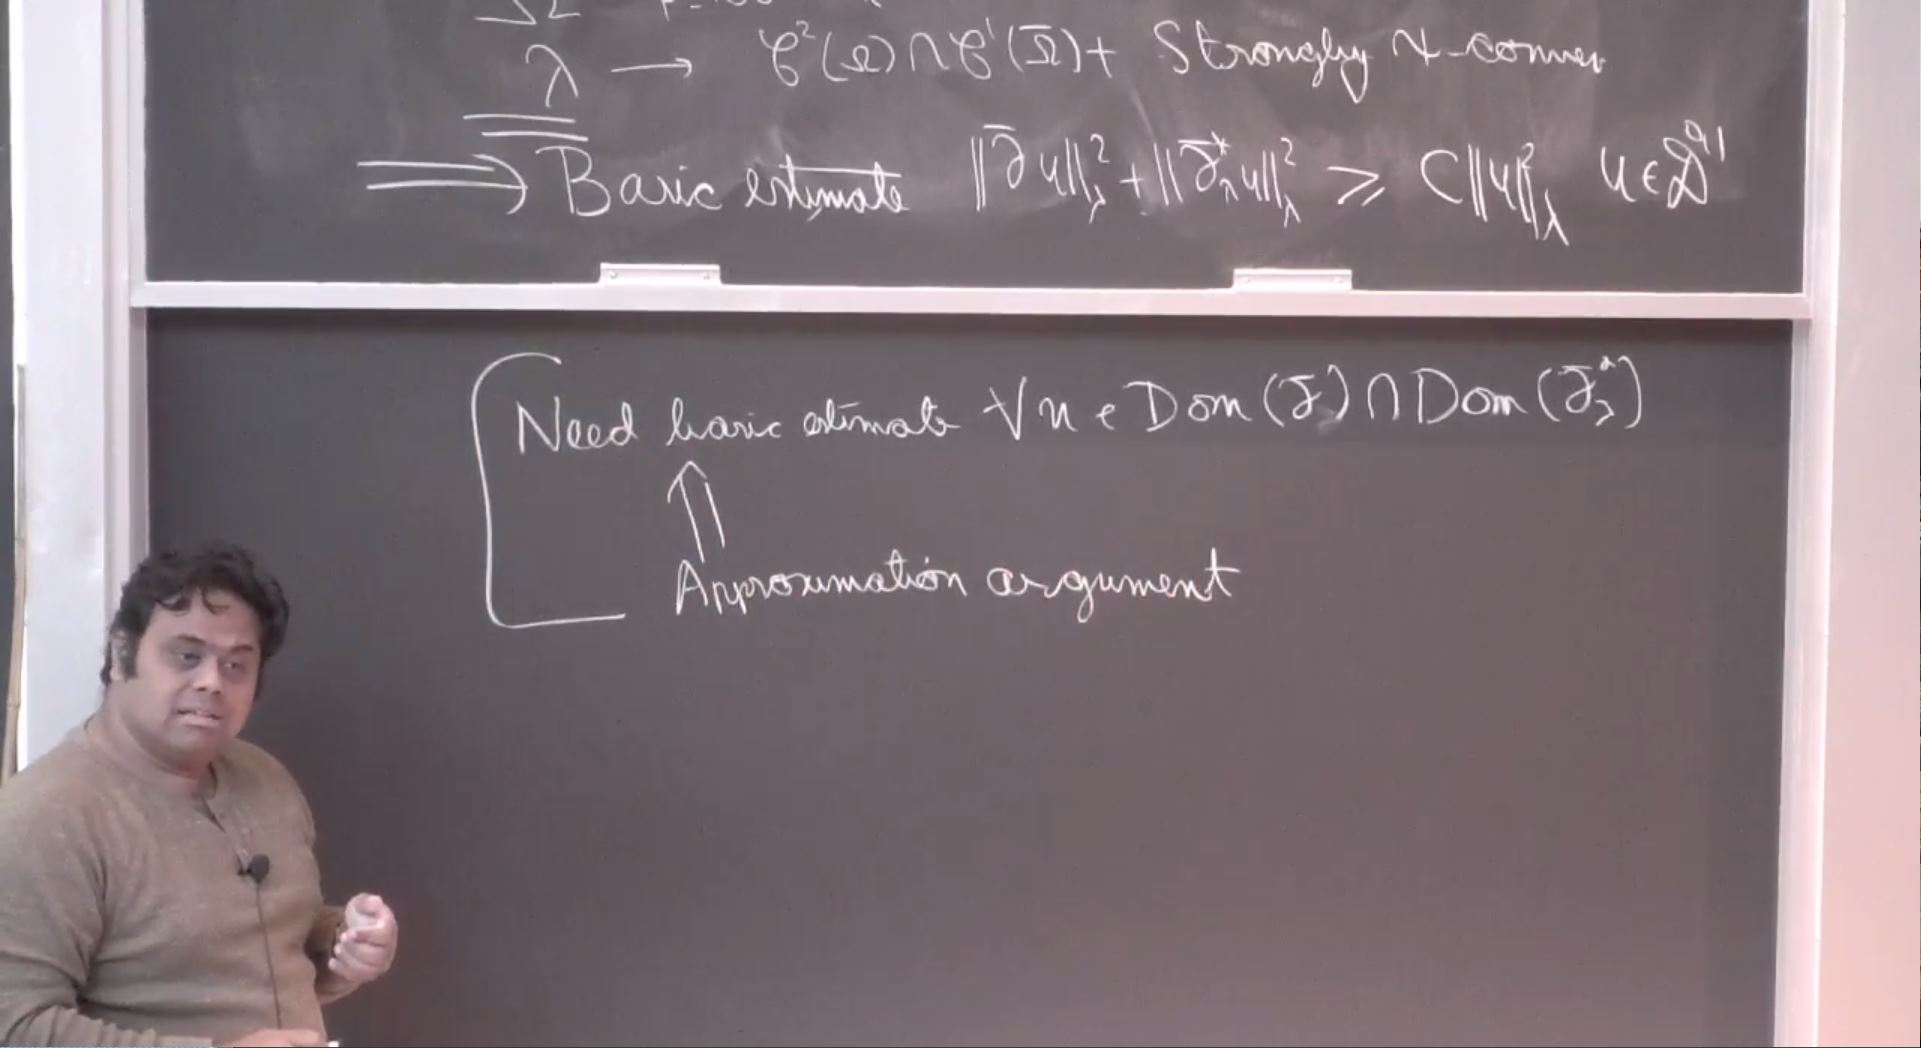 Ω
λ → 𝒞²(Ω) ∩ 𝒞¹(Ω̄) + Strongly ψ-convex
⟹ Basic estimate ‖∂̄u‖²_λ + ‖∂̄*_λ u‖²_λ ≥ C‖u‖²_λ u ∈ 𝒟^{0,1}
Need basic estimate ∀ u ∈ Dom(∂̄) ∩ Dom(∂̄*_λ)
⇑
Approximation argument